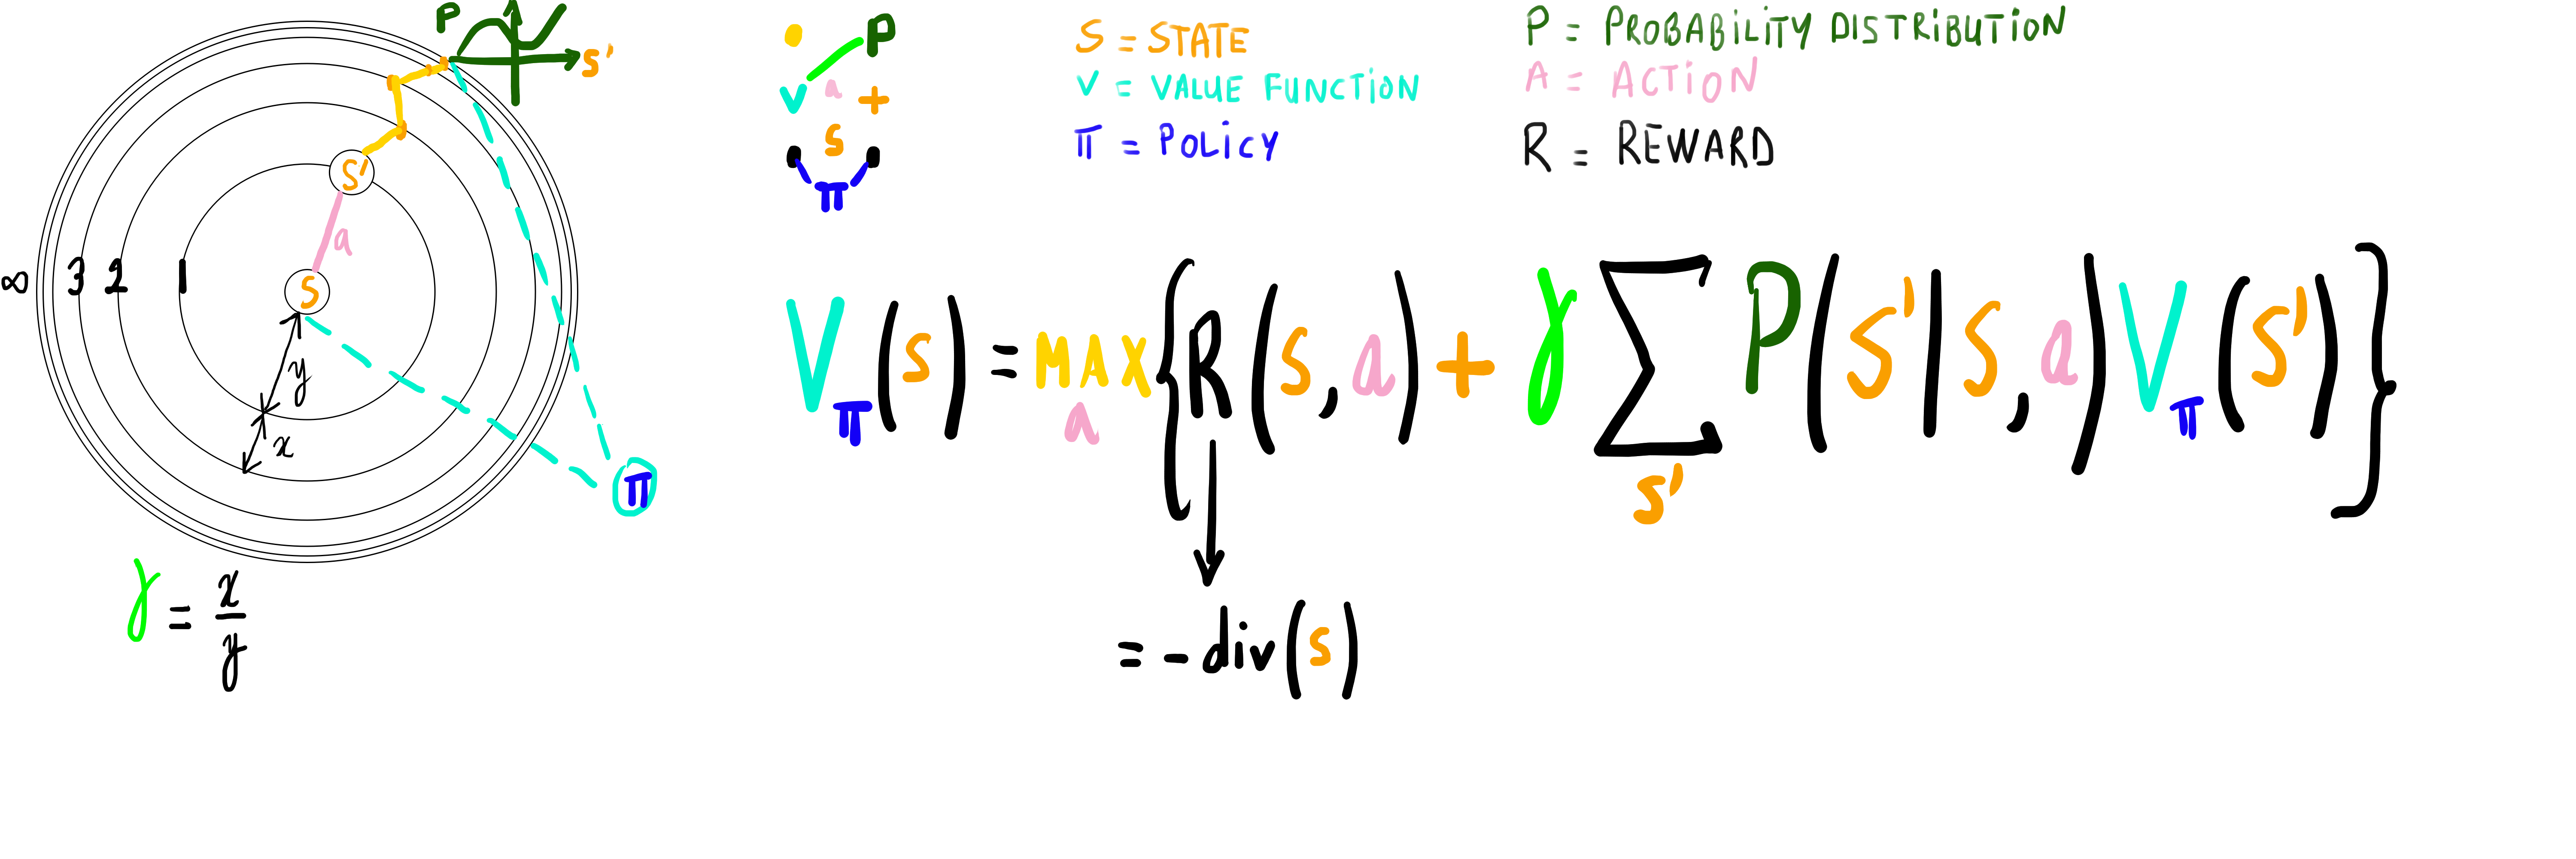 P
S'
∞ 3 2 1
S'
a
S
y
x
π
γ = x/y
P
V a +
S
π
S = STATE
V = VALUE FUNCTION
π = POLICY
P = PROBABILITY DISTRIBUTION
A = ACTION
R = REWARD
V_π(S) = MAX_a {R(S,a) + γ Σ_S' P(S'|S,a) V_π(S')}
= -div(S)